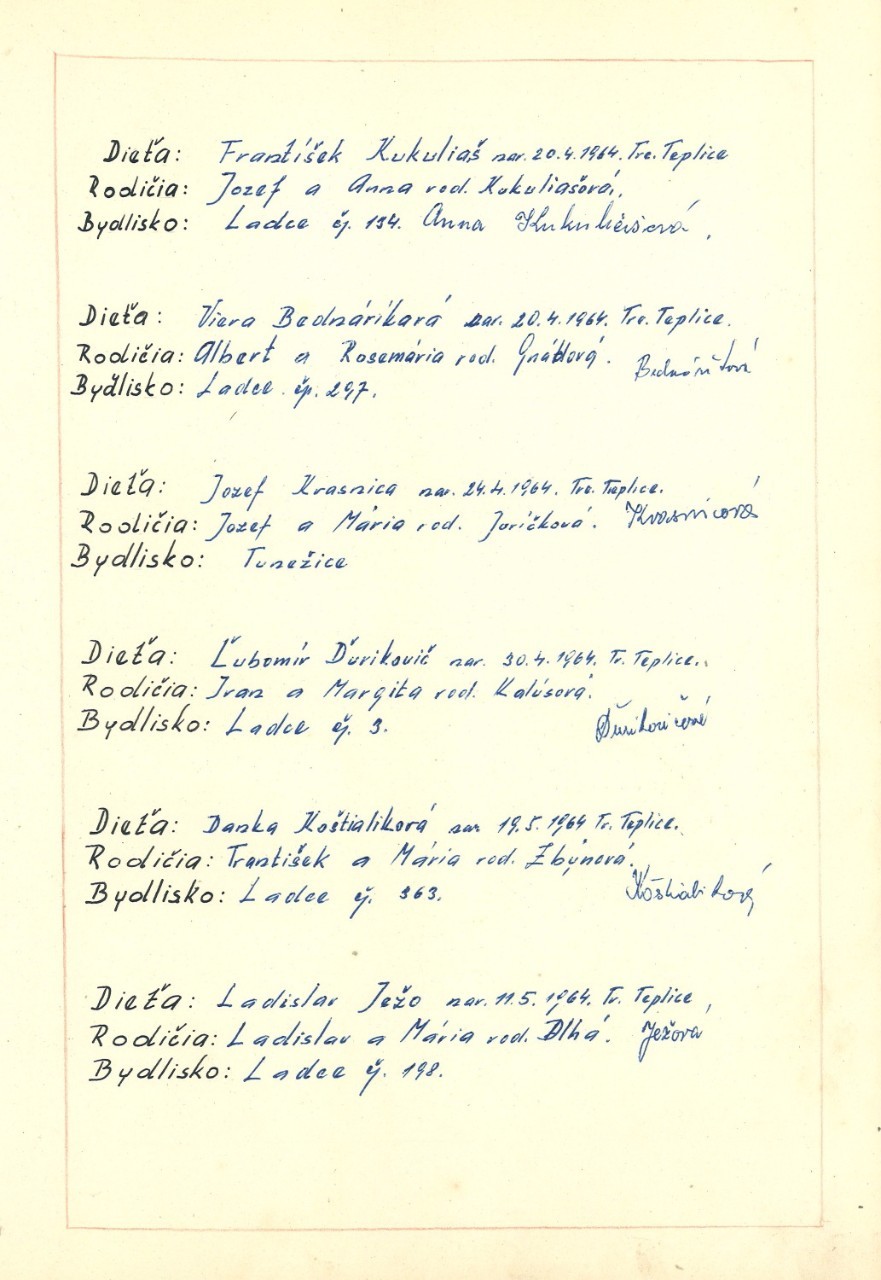 Dieťa: František Kukuliaš nar. 20.4.1964. Trč. Teplice
Rodičia: Jozef a Anna rod. Kukuliašová.
Bydlisko: Ladce čj. 194. Anna Kukuliašová.
Dieťa: Viera Bednáriková nar. 20.4.1964. Trč. Teplice.
Rodičia: Albert a Rosemária rod. Gnáttová. Bednáriková
Bydlisko: Ladce čp. 297.
Dieťa: Jozef Krasnica nar. 24.4.1964. Trč. Teplice.
Rodičia: Jozef a Mária rod. Juríčková. Krasnicová
Bydlisko: Tunežice
Dieťa: Ľubomír Ďurikovič nar. 30.4.1964. Tr. Teplice.
Rodičia: Ivan a Margita rod. Kalúsová.
Bydlisko: Ladce čj. 3. Ďurikovičová
Dieťa: Danka Koštialiková nar 19.5.1964 Tr. Teplice.
Rodičia: František a Mária rod. Zbýnová.
Bydlisko: Ladce čj. 363. Koštialiková
Dieťa: Ladislav Ježo nar. 11.5.1964. Tr. Teplice
Rodičia: Ladislav a Mária rod. Dlhá. Ježová
Bydlisko: Ladce čj. 198.